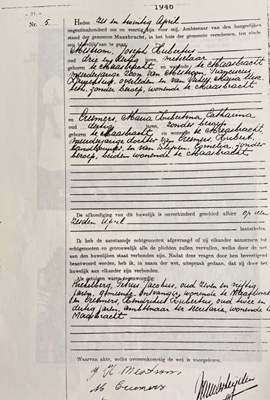 1940
Nr. 5
Heden zes en twintig April
negentienhonderd zes en veertig zijn voor mij, Ambtenaar van den burgerlijken
stand der gemeente Maasbracht, in het huis der gemeente verschenen, ten einde
een huwelijk aan te gaan
Mestrom, Joseph Hubertus
oud drie en dertig metselaar
geboren te Maasbracht en wonende te Maasbracht
meerderjarige zoon van Mestrom, Franciscus
zonder beroep, wonende te Maasbracht
en Creemers, Maria Hubertina Catharina
oud dertig zonder beroep
geboren te Maasbracht en wonende te Maasbracht
meerderjarige dochter van Creemers, Hubert
landbouwer, en van Cornelia, zonder
beroep, beiden wonende te Maasbracht
De afkondiging van dit huwelijk is onverhinderd geschied alhier op den
April
laatstleden.
Ik heb de aanstaande echtgenooten afgevraagd of zij elkander aannemen tot
echtgenooten en getrouwelijk alle de plichten zullen vervullen, welke door de wet
aan den huwelijken staat verbonden zijn. Nadat deze vragen door hen bevestigend
beantwoord werden, heb ik, in naam der wet, uitspraak gedaan, dat zij door het
huwelijk aan elkander zijn verbonden.
Als getuigen waren tegenwoordig:
Petrus Jacobus, oud zeven en vijftig
jaren, gemeente ontvanger, wonende te Maasbracht
en Creemers, Hubertus, oud twee en
dertig jaren, ambtenaar ter secretarie, wonende te
Maasbracht
Waarvan akte, welke overeenkomstig de wet is voorgelezen.
J. H. Mestrom
M. Creemers